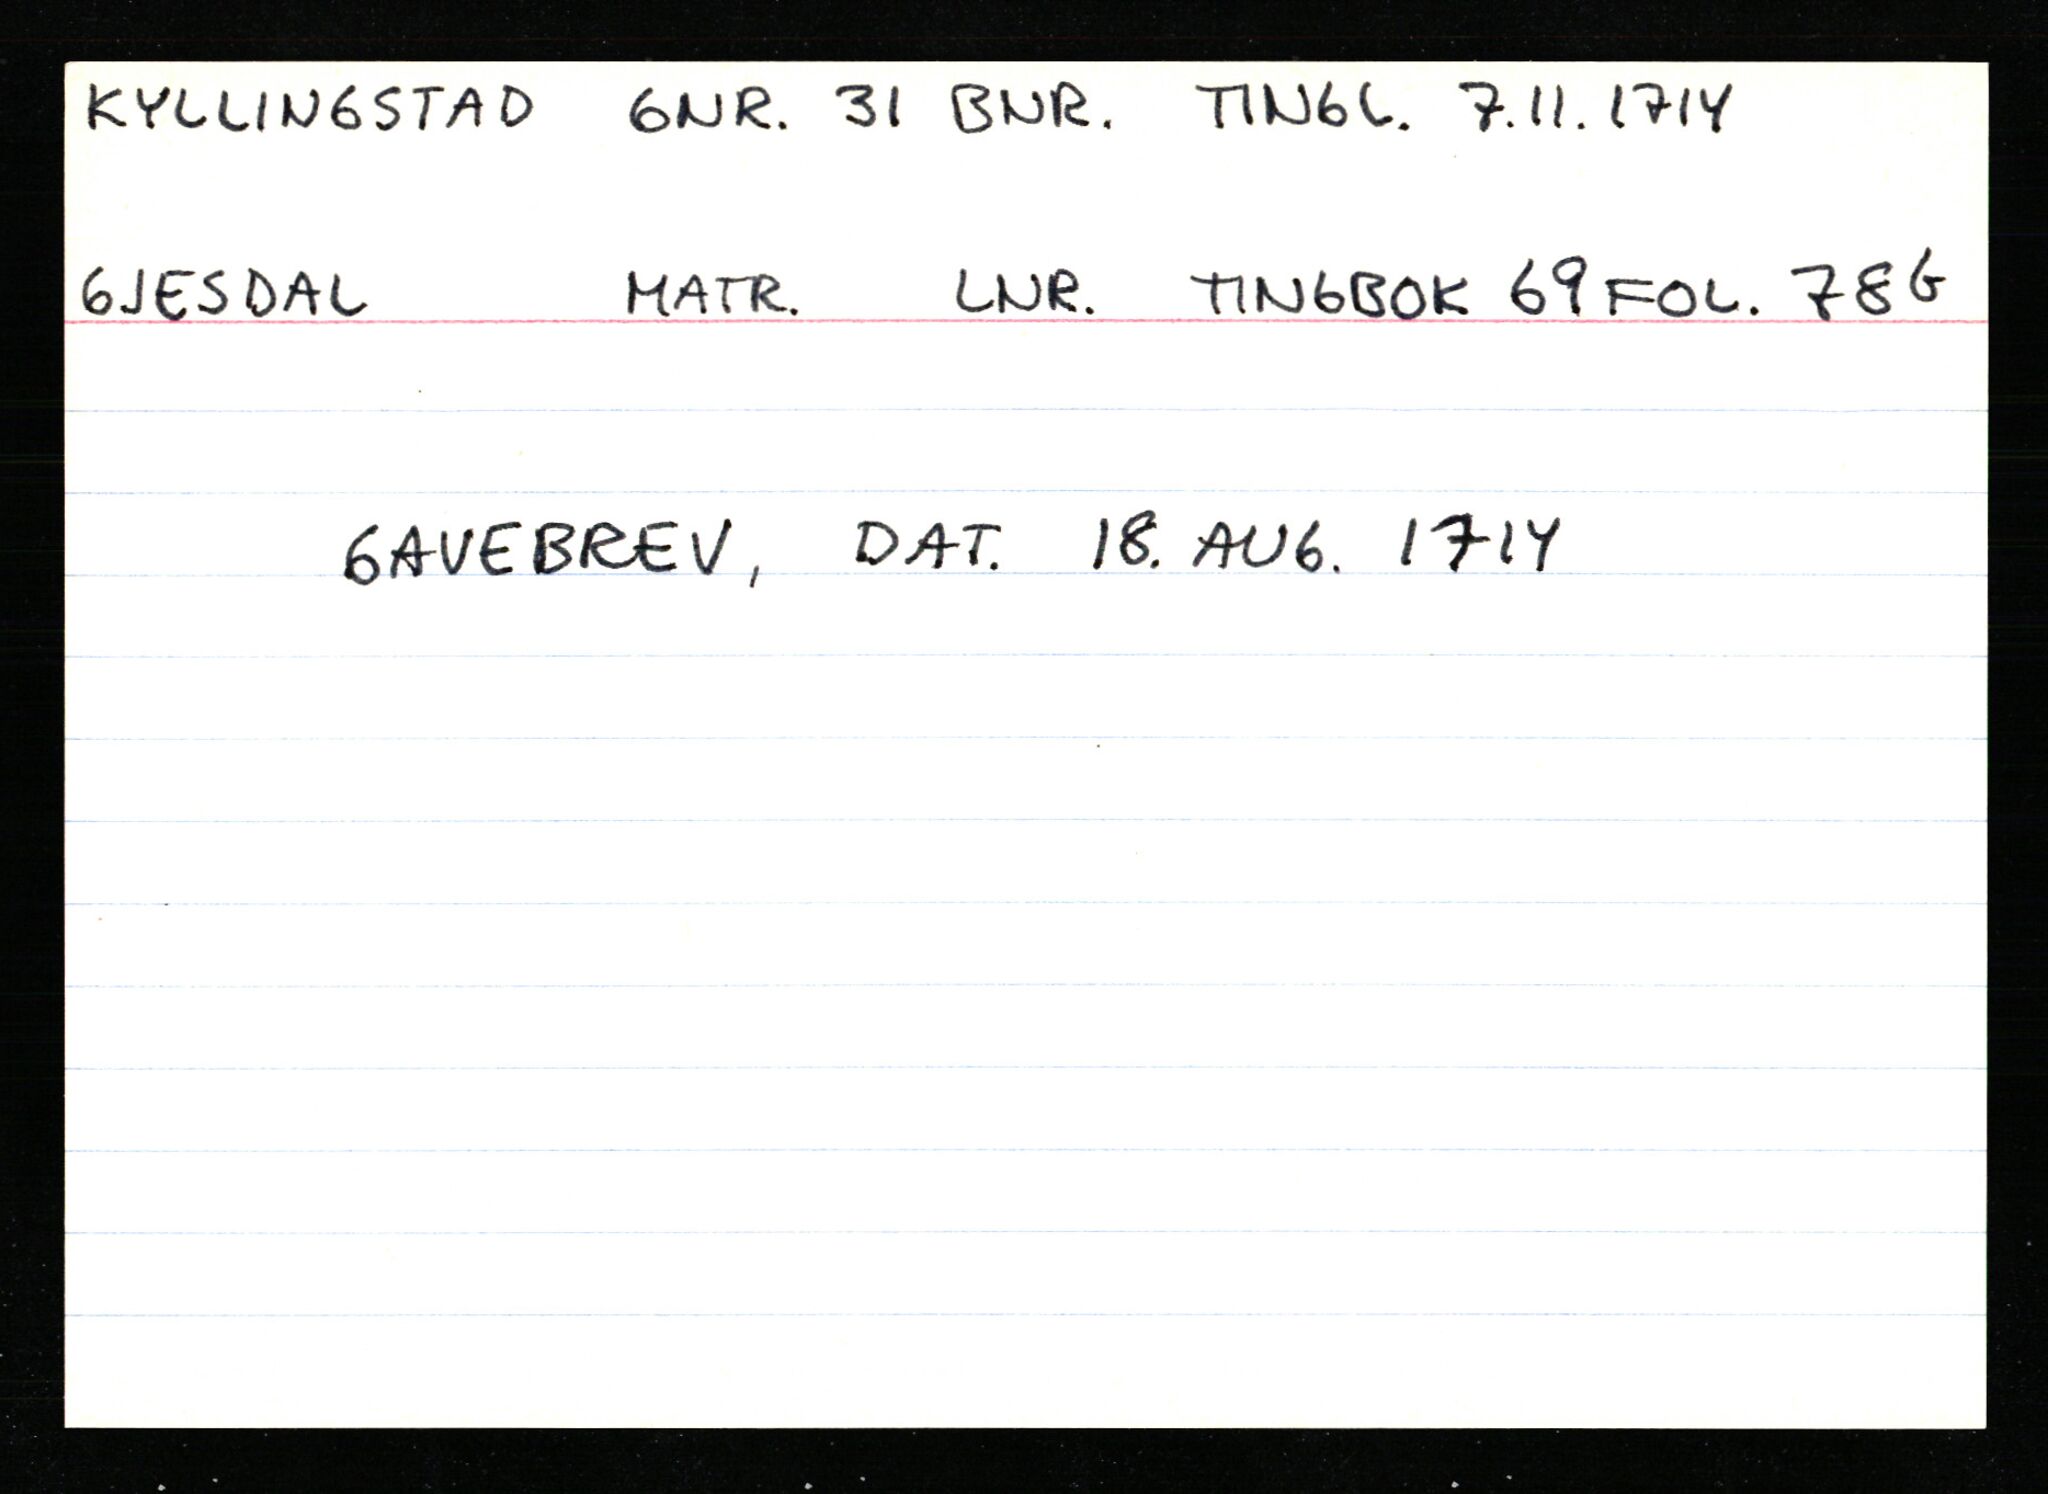 KYLLINGSTAD GNR. 31 BNR. TINGL. 7.11.1714
GJESDAL MATR. LNR. TINGBOK 69 FOL. 78 b
GAVEBREV, DAT. 18. AUG. 1714